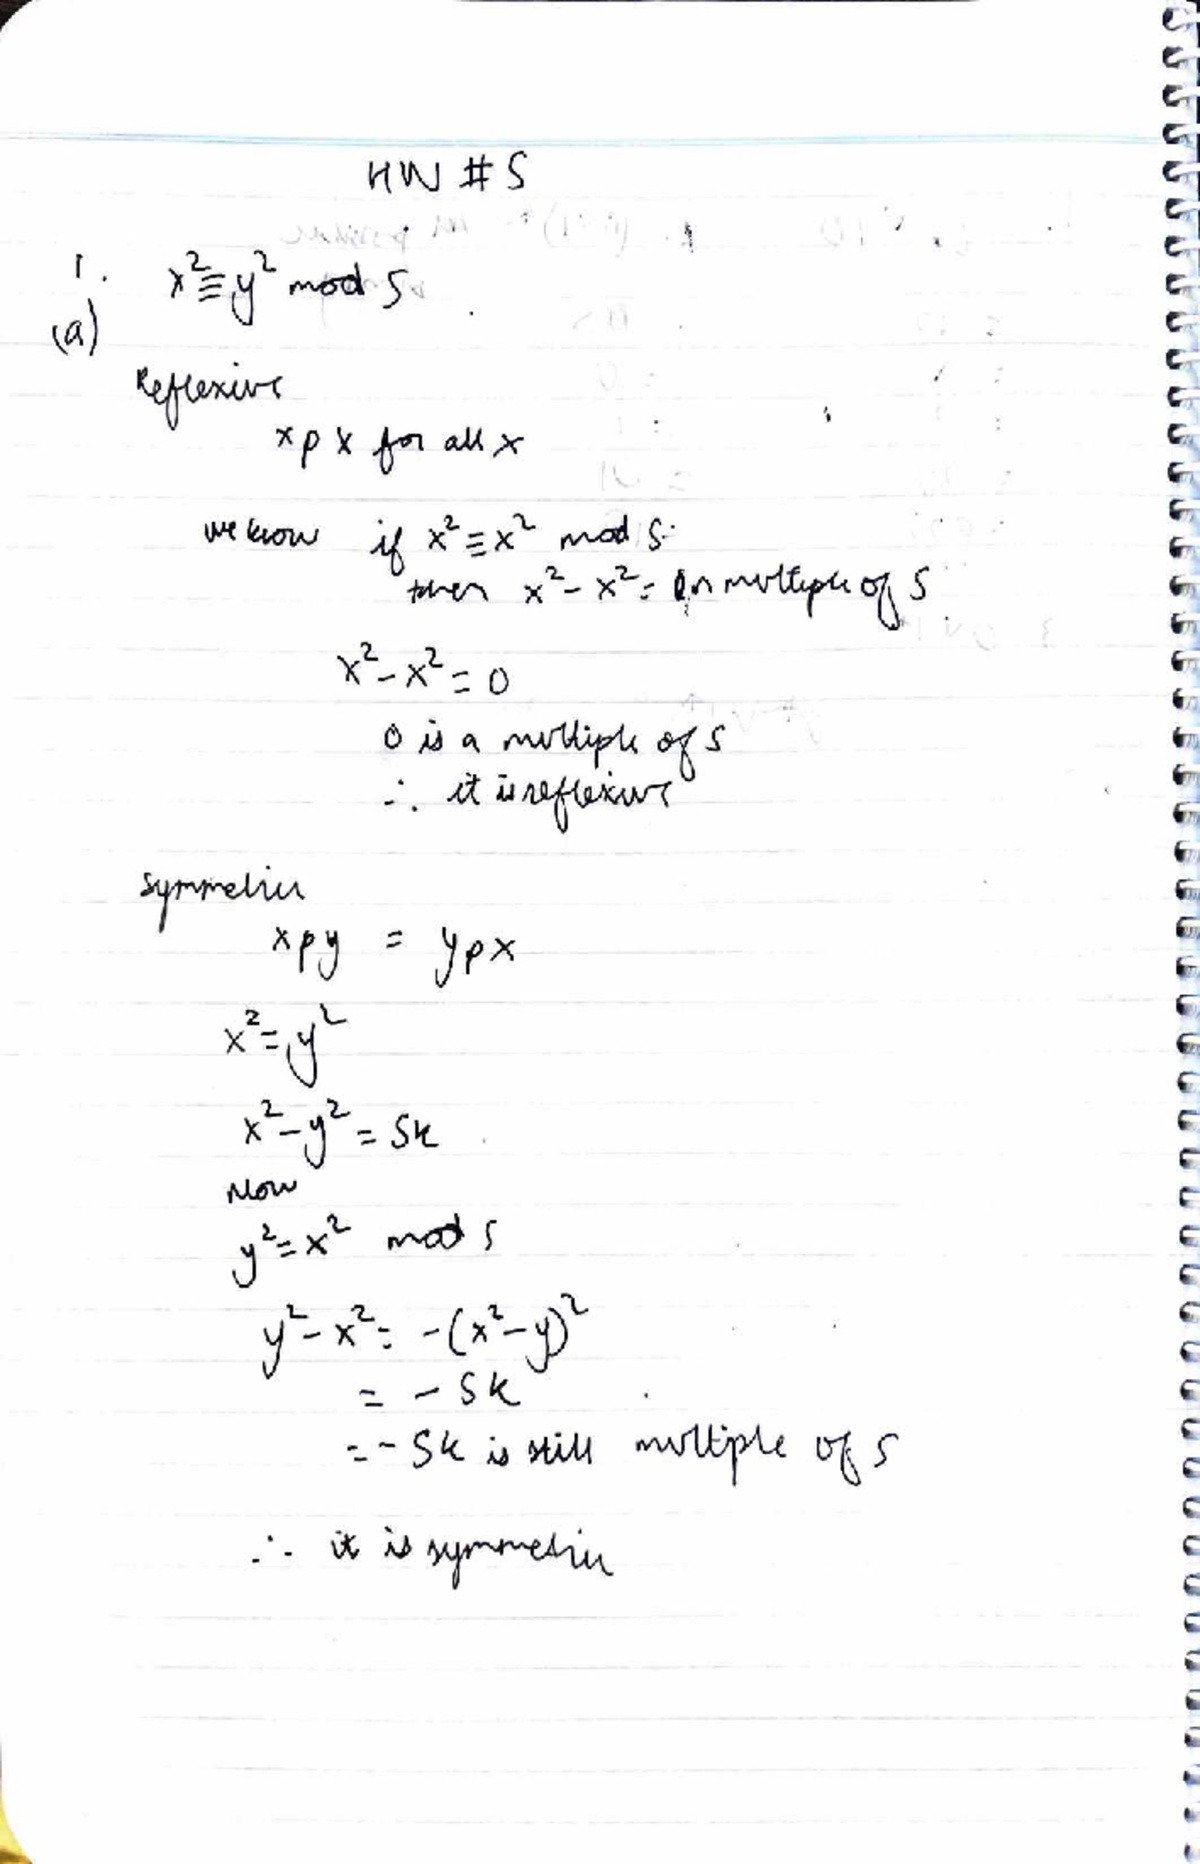 HW #5
1. x² ≡ y² mod 5
(a)
Reflexive
x ρ x for all x
we know if x² ≡ x² mod 5
then x² - x² = multiple of 5
x² - x² = 0
0 is a multiple of 5
∴ it is reflexive
Symmetric
x ρ y = y ρ x
x² = y²
x² - y² = 5k
Now
y² = x² mod 5
y² - x² = -(x² - y)²
= - 5k
= - 5k is still multiple of 5
∴ it is symmetric